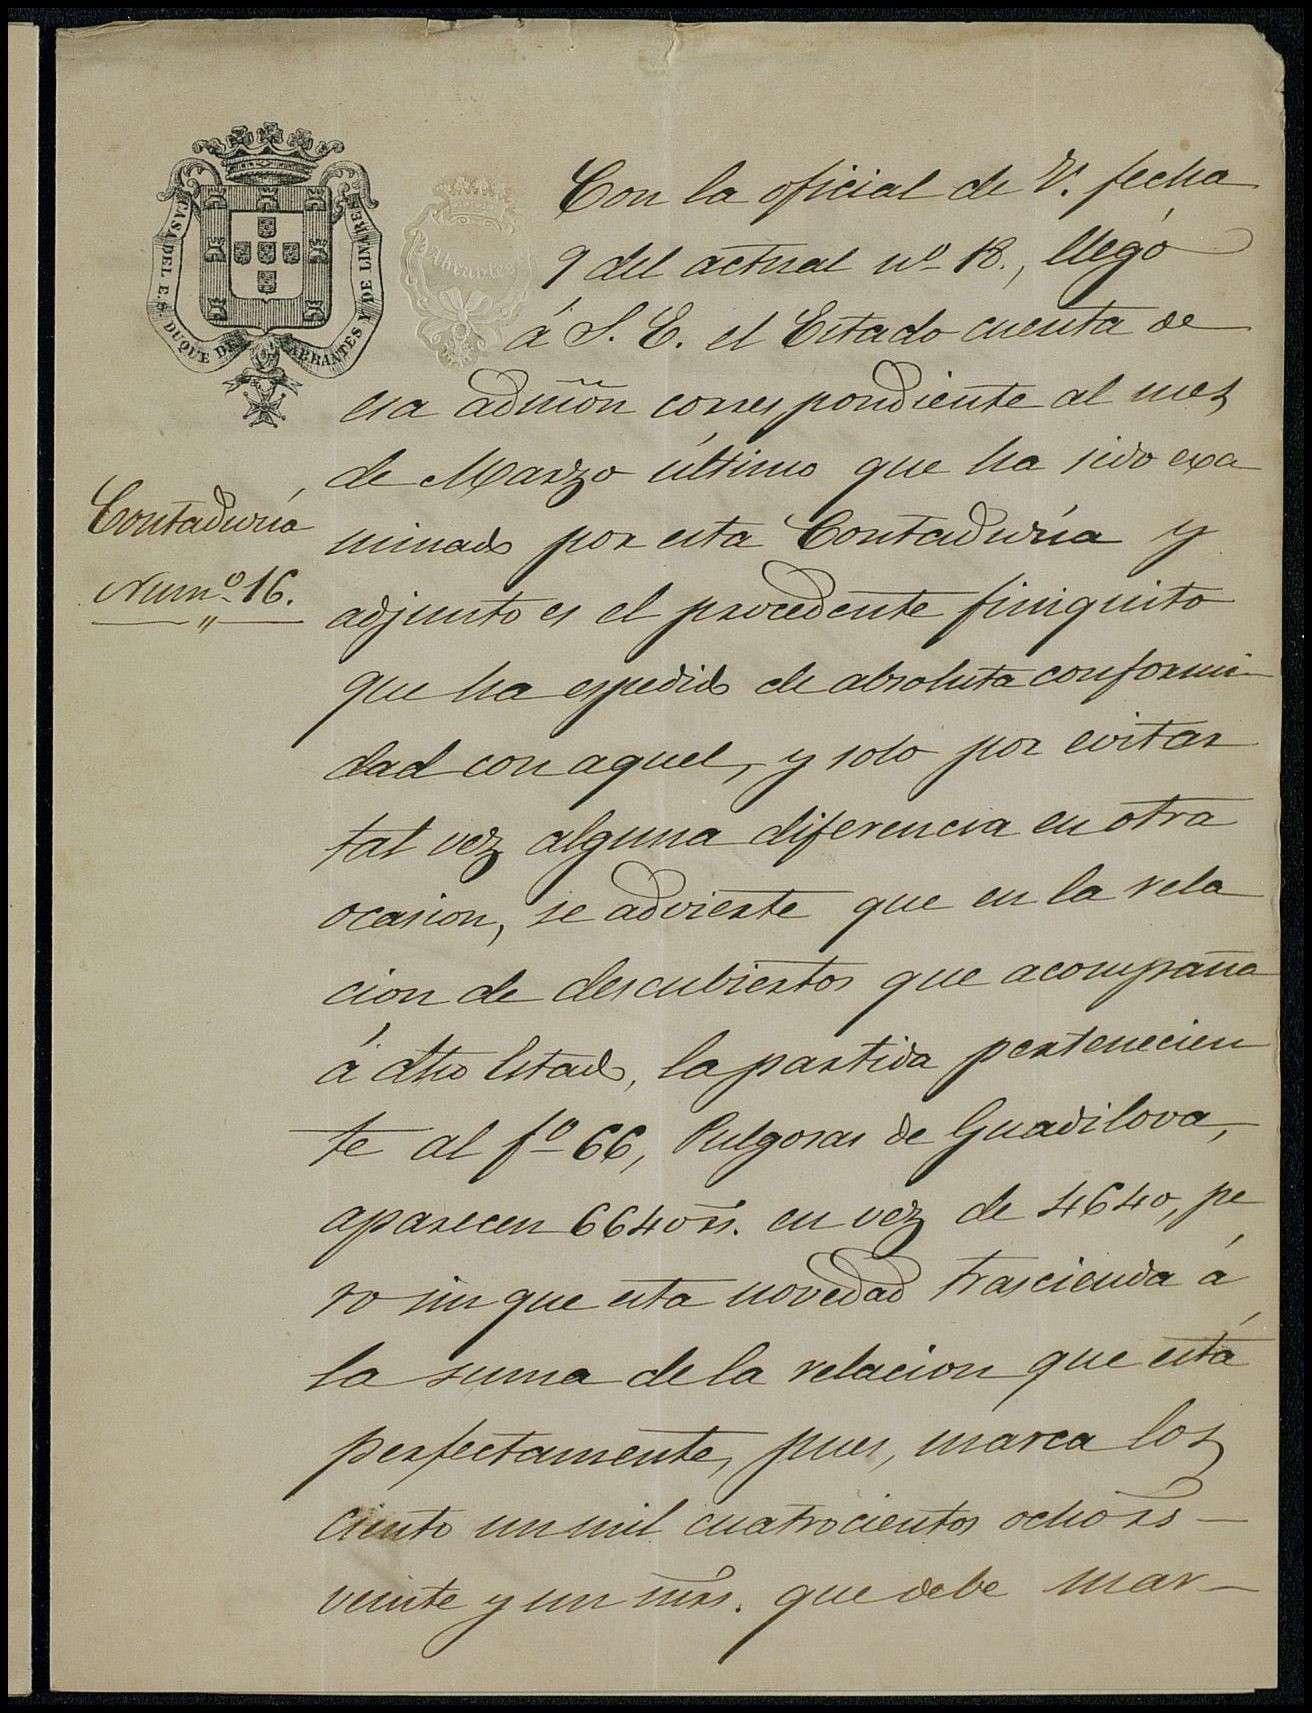 CASA DEL E. S. DUQUE DE ABRANTES Y DE LINARES
Abrantes
Con la oficial de V. fecha
9 del actual nº 18., llegó
á S. E. el Estado cuenta de
esa admõn correspondiente al mes
de Marzo último que ha sido exa
Contaduría
minado por esta Contaduría y
Numº 16.
adjunto es el procedente finiquito
que ha espedido de absoluta conformi-
dad con aquel, y solo por evitar
tal vez alguna diferencia en otra
ocasion, se advierte que en la rela
cion de descubiertos que acompaña
á dho Estado, la partida pertenecien
te al fº 66, Pulgosas de Guadilova,
aparecen 6640 rs. en vez de 4640, pe
ro sin que esta novedad trascienda á
la suma de la relacion que está
perfectamente, pues, marca los
ciento un mil cuatrocientos ocho rs
veinte y un mrs. que debe mar-